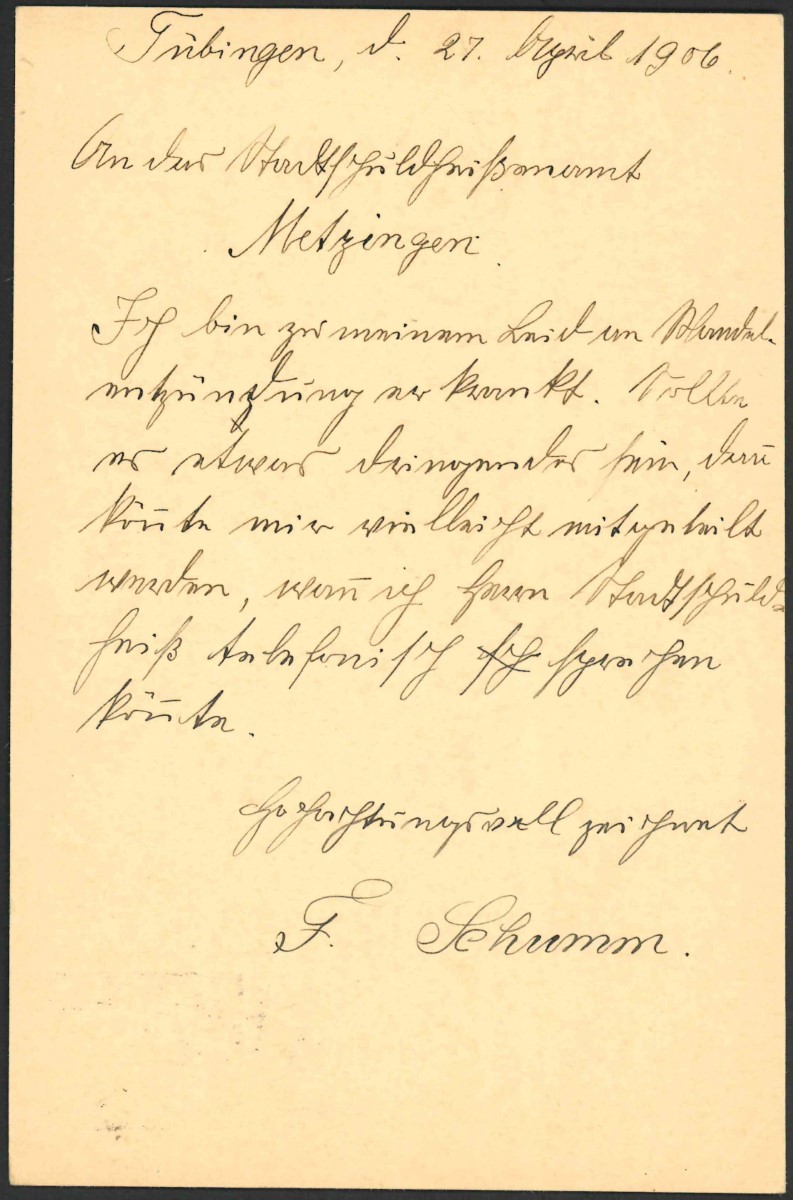 Tübingen, d. 27. April 1906.
An das Stadtschuldheißenamt
Metzingen.
Ich bin zu meinem Leid an Mandel-
entzündung erkrankt. Sollte
es etwas dringendes sein, dan̄
kön̄te mir vielleicht mitgeteilt
werden, wan̄ ich Herrn Stadtschuld-
heiß telefonisch sch sprechen
kön̄te.
Hochachtungsvoll zeichnet
F. Schumm.